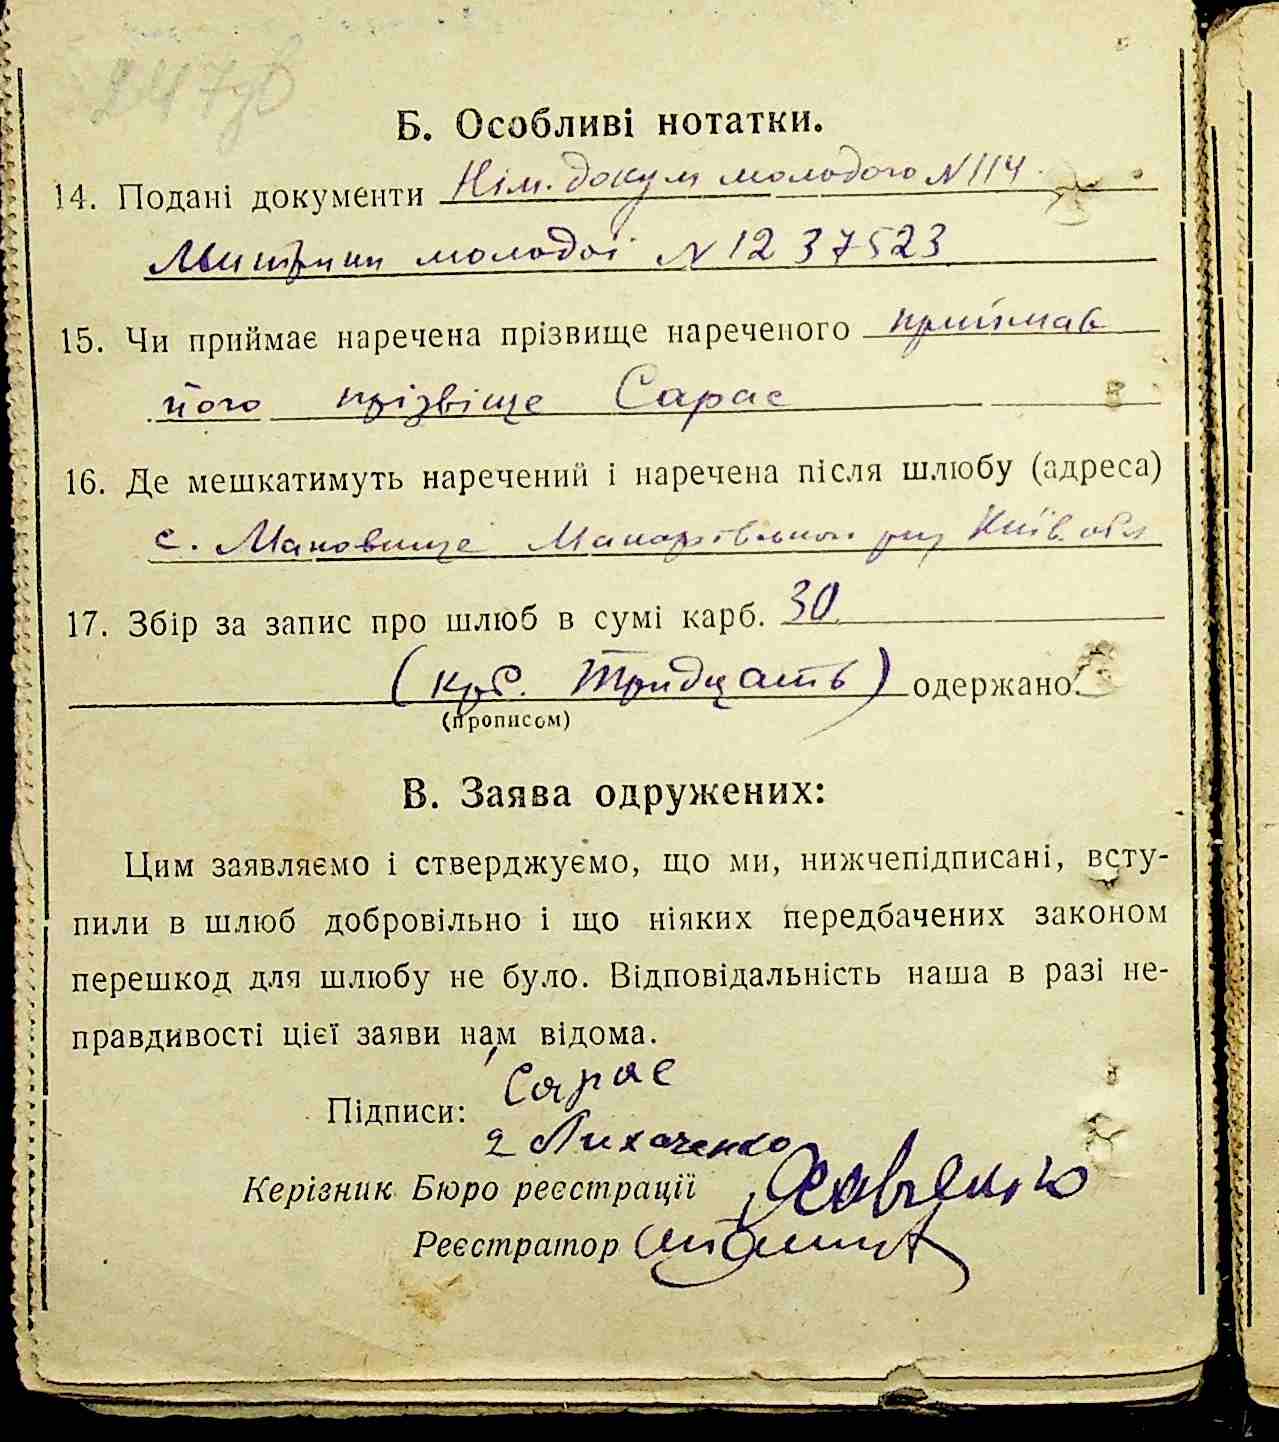 247зв
Б. Особливі нотатки.
14. Подані документи Нім. докум молодого N 114
молодої N 1237523
15. Чи приймає наречена прізвище нареченого приймає
його прізвіще Сарас
16. Де мешкатимуть наречений і наречена після шлюбу (адреса)
с. Маковище Макарівського р-ну Київ. обл
17. Збір за запис про шлюб в сумі карб. 30
(крб. Тридцать) одержано.
(прописом)
В. Заява одружених:
Цим заявляємо і стверджуємо, що ми, нижчепідписані, всту-
пили в шлюб добровільно і що ніяких передбачених законом
перешкод для шлюбу не було. Відповідальність наша в разі не-
правдивості цієї заяви нам відома.
Підписи: Сарас
2 Лихаченко
Керізник Бюро реєстрації
Реєстратор